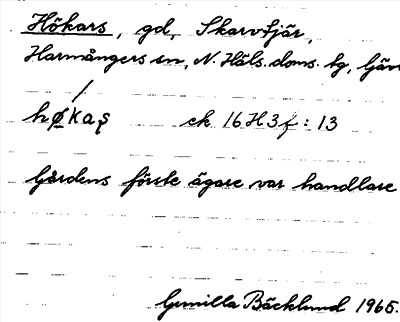 Hökars, gd, Skarvtjär,
Harmångers sn, N. Häls. doms. tg, Gäv
høkaş ek 16H3f:13
Gårdens förste ägare var handlare
Gunilla Bäcklund 1965.